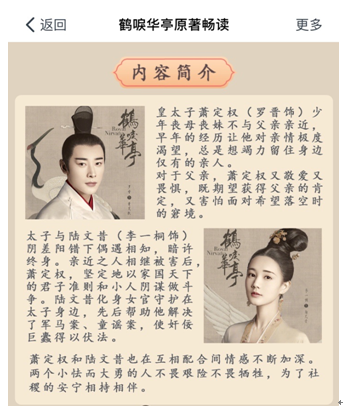 返回
鹤唳华亭原著畅读
更多
内容简介
鹤唳华亭
皇太子萧定权（罗晋饰）少
年丧母丧妹不与父亲亲近，
早年的经历让他对亲情极度
渴望，总是想竭力留住身边
仅有的亲人。
对于父亲，萧定权又敬爱又
畏惧，既期望获得父亲的肯
定，又害怕面对希望落空时
的窘境。
太子与陆文昔（李一桐饰）
阴差阳错下偶遇相知，暗许
终身。亲近之人相继被害后，
萧定权，坚定地以家国天下
的君子准则和小人阴谋做斗
争。陆文昔化身女官守护在
太子身边，先后帮助他解决
了军马案、童谣案，使奸佞
巨蠹得以伏法。
鹤唳华亭
萧定权和陆文昔也在互相配合间情感不断加深。
两个小怯而大勇的人不畏艰险不畏牺牲，为了社
稷的安宁相持相伴。